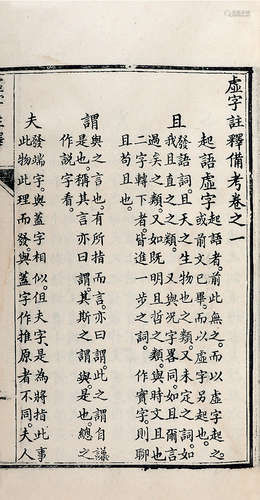 虛字註釋備考卷之一
起語虛字 起語者。前此無之。而以虛字起之
或前文已畢。而以虛字另起也。
且
發語詞。且天之生物也之類。又未定之詞。如
我且直之之類。又與況字畧同。如且爾言
過矣之類。又如既明且哲之類。與時文且也
二字轉下者。皆進一步之詞。作實字。則聊
且苟且也。
謂
與之言也。有所指而言。亦曰謂。此之謂自謙
是也。稱其言亦曰謂。其斯之謂與是也。總之
作說字看。
夫
發端字。與蓋字相似。但夫字、是為將指此事
此物此理而發。與蓋字作推原者不同。夫人